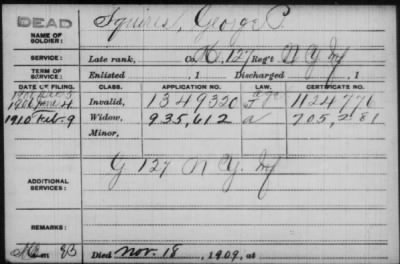 DEAD
NAME OF SOLDIER: Squires, George P.
SERVICE: Late rank, Co. K, 127 Reg't N Y Inf
TERM OF SERVICE: Enlisted , 1 Discharged , 1
DATE OF FILING. CLASS. APPLICATION NO. LAW. CERTIFICATE NO.
Invalid, 1349320 1124776
1910 Feb. 9 Widow, 935,612 705,281
Minor,
ADDITIONAL SERVICES: G 127 N Y. Inf
REMARKS:
Died Nov. 18, 1909, at